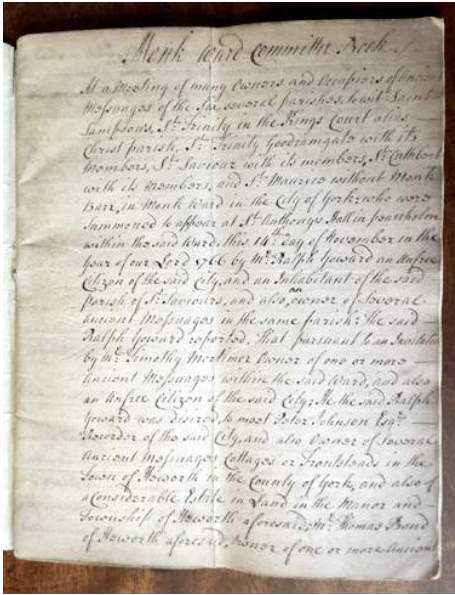 Monk Ward Committee Book
At a Meeting of many Owners and Occupiors of Ancient
Messuages of the Six several parishes, to wit Saint
Sampsons, St. Trinity in the Kings Court alias
Christ parish, St. Trinity Goodramgate with its
Members, St. Saviour with its members, St. Cuthbert
with its members, and St. Maurice without Monk
Barr, in Monk Ward in the City of York; who were
Summoned to appear at St. Anthonys Hall in peaseholm
within the said Ward, this 14th. day of November in the
Year of our Lord 1766 by Mr. Ralph Yoward an Unfree
Citizen of the said City, and an Inhabitant of the said
parish of St. Saviours, and also, an owner of Several
Ancient Messuages in the same parish: the said
Ralph Yoward reported, that pursuant to an Invitation
by Mr. Timothy Mortimer Owner of one or more
Ancient Messuages within the said Ward, and also
an Unfree Citizen of the said City; He the said Ralph
Yoward was desired, to meet Peter Johnson Esqr.
Recorder of the said City, and also Owner of Several
Ancient Messuages Cottages or Frontsteads in the
Town of Heworth in the County of York, and also of
a Considerable Estate in Land in the Manor and
Township of Heworth aforesaid; Mr. Thomas
of Heworth aforesaid, Owner of one or more Ancient